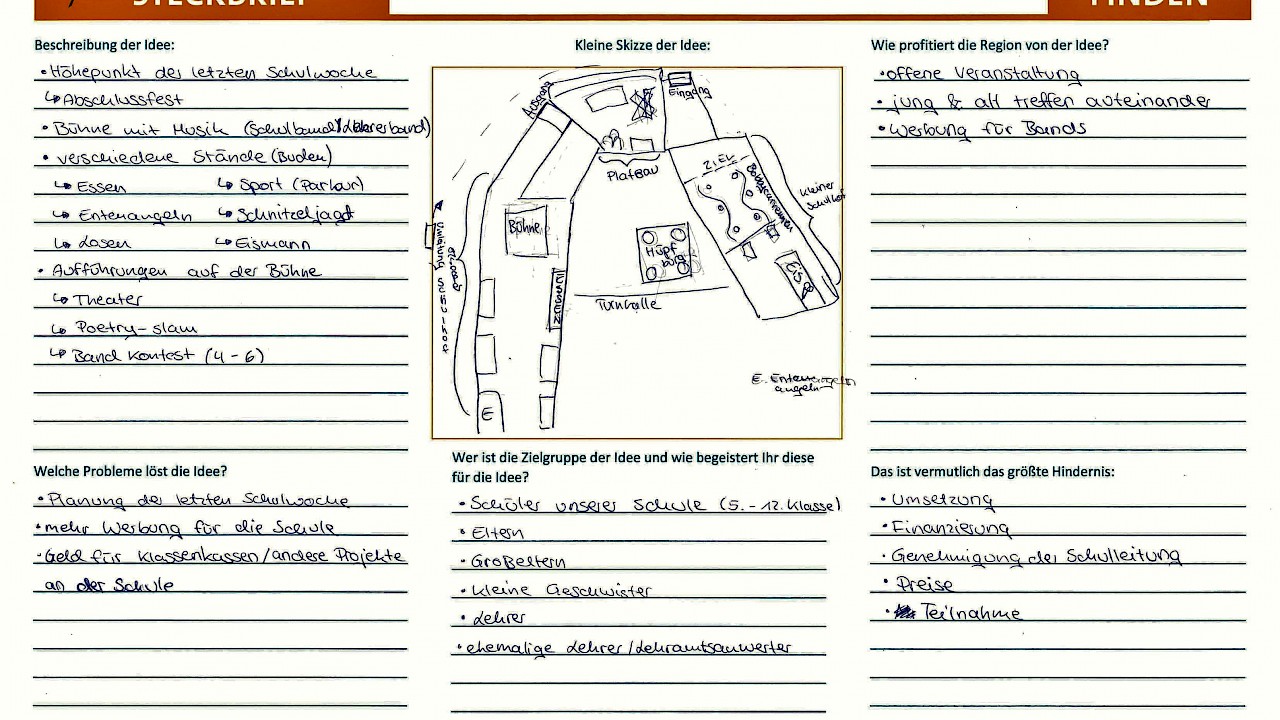 STECKBRIEF
FINDEN
Beschreibung der Idee:
• Höhepunkt der letzten Schulwoche
↳ Abschlussfest
• Bühne mit Musik (Schulband/Lehrerband)
• verschiedene Stände (Buden)
↳ Essen ↳ Sport (Parkour)
↳ Entenangeln ↳ Schnitzeljagd
↳ Losen ↳ Eismann
• Aufführungen auf der Bühne
↳ Theater
↳ Poetry-slam
↳ Band Kontest (4-6)
Kleine Skizze der Idee:
Ausgang
Eingang
Plafbau
ZIEL
Bobbycarrennen
Kleiner Schulhof
Bühne
Hüpf
burg
Eis
Turnhalle
Schulhof
E
E. Entenangeln
angeln
Wie profitiert die Region von der Idee?
• offene Veranstaltung
• jung & alt treffen aufeinander
• Werbung für Bands
Welche Probleme löst die Idee?
• Planung der letzten Schulwoche
• mehr Werbung für die Schule
• Geld für Klassenkassen/andere Projekte
an der Schule
Wer ist die Zielgruppe der Idee und wie begeistert Ihr diese
für die Idee?
• Schüler unserer Schule (5. - 12. Klasse)
• Eltern
• Großeltern
• kleine Geschwister
• Lehrer
• ehemalige Lehrer/Lehramtsanwerter
Das ist vermutlich das größte Hindernis:
• Umsetzung
• Finanzierung
• Genehmigung der Schulleitung
• Preise
• Teilnahme